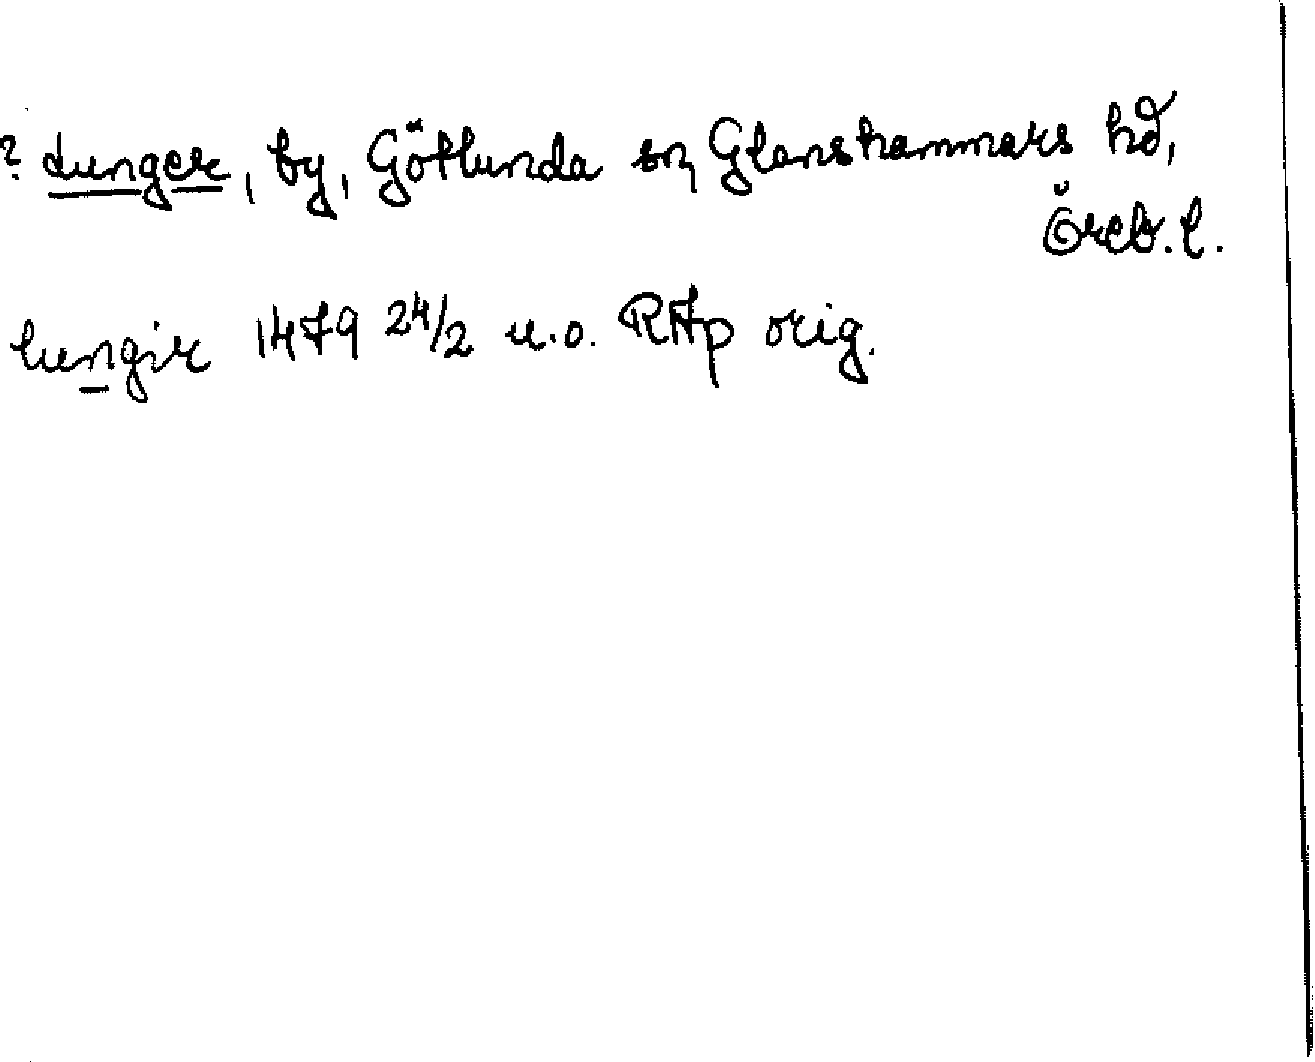 ? Lunger, by, Götlunda sn, Glanshammars hd,
Öreb. l.
lungir 1479 24/2 u.o. RAp orig.